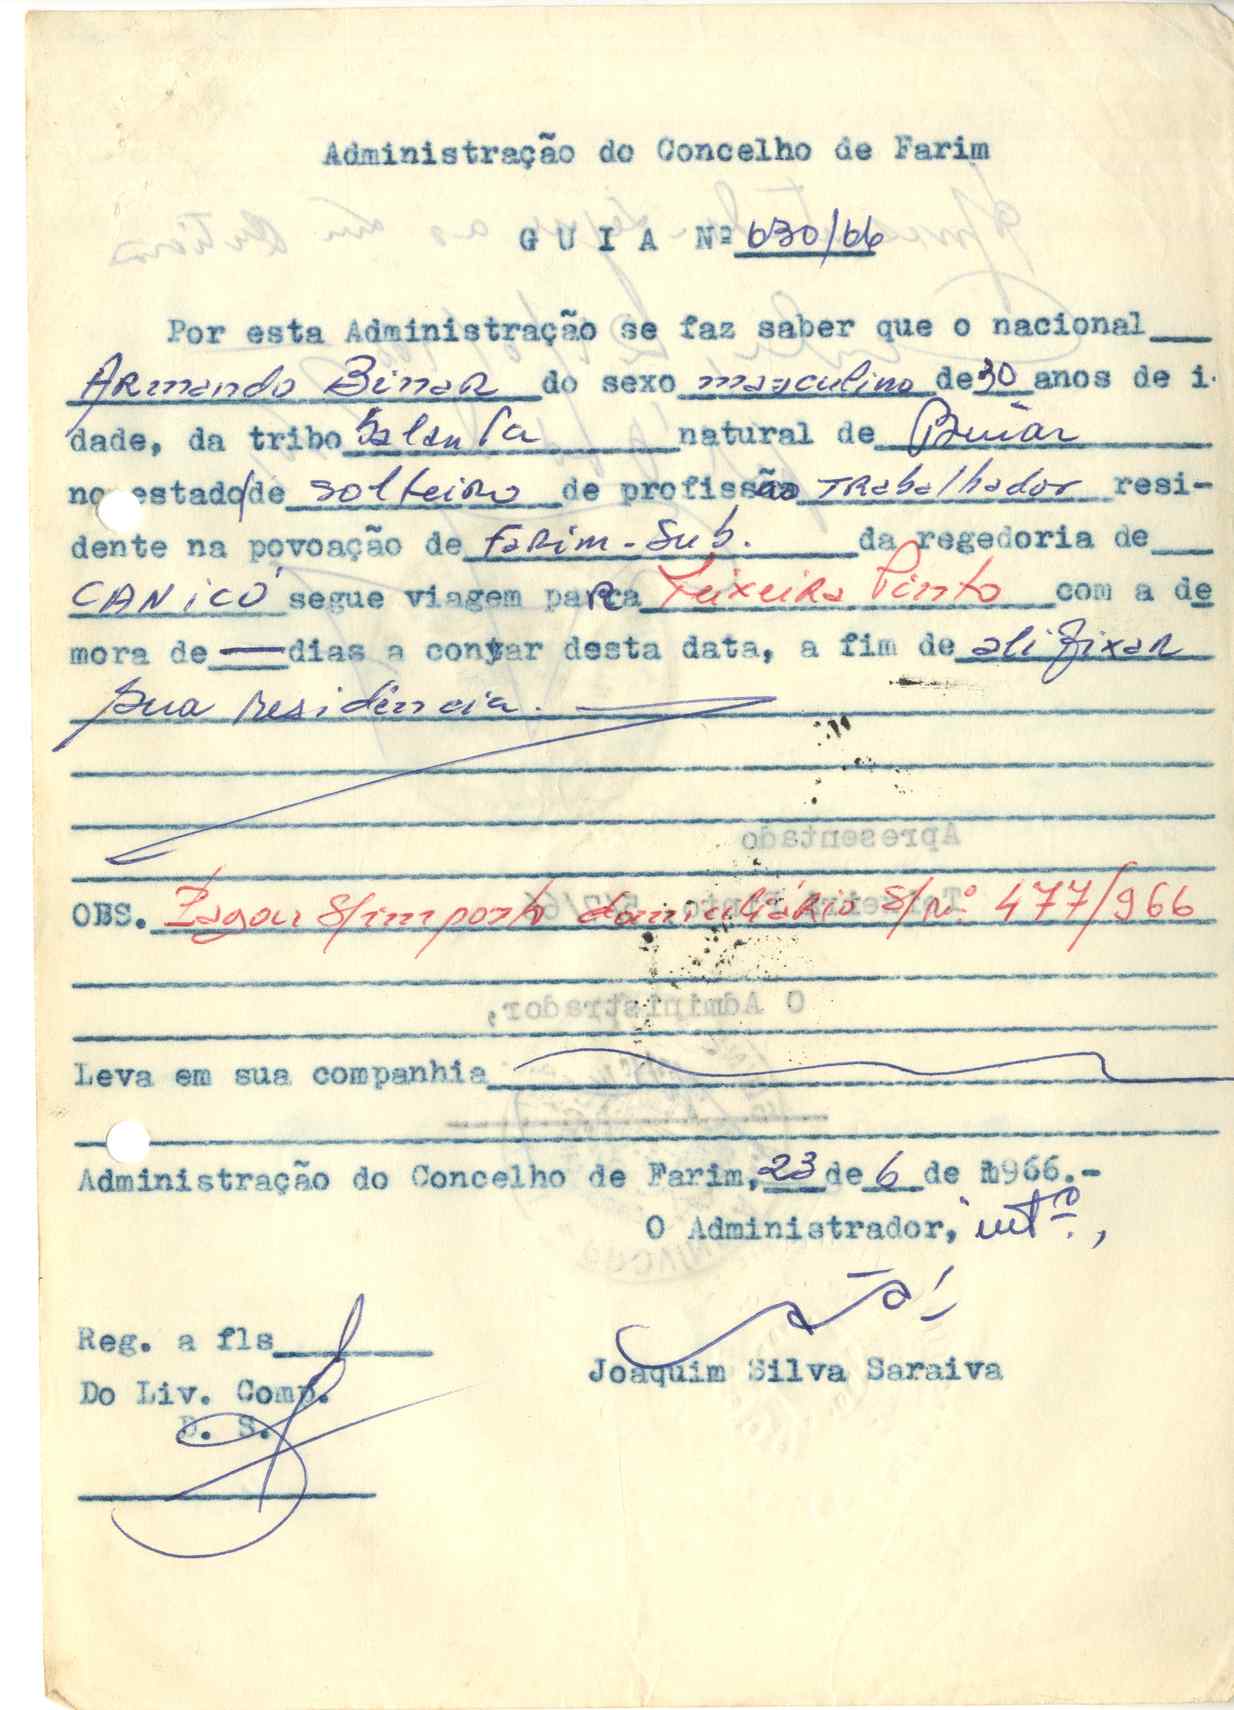 Administração do Concelho de Farim
G U I A Nº 630/66
Por esta Administração se faz saber que o nacional
Armando Binar do sexo masculino de 30 anos de i-
dade, da tribo Balanta natural de
no estado de solteiro de profissão Trabalhador resi-
dente na povoação de Farim-Sub. da regedoria de
CANICÓ segue viagem para Teixeira Pinto com a de
mora de — dias a contar desta data, a fim de ali fixar
sua residência.
OBS. Pagou s/imposto domiciliário s/nº 477/966
Leva em sua companhia
Administração do Concelho de Farim, 23 de 6 de 1966.-
O Administrador, intº.,
Joaquim Silva Saraiva
Reg. a fls
Do Liv. Comp.
D. S.
Apresentado
O Administrador,